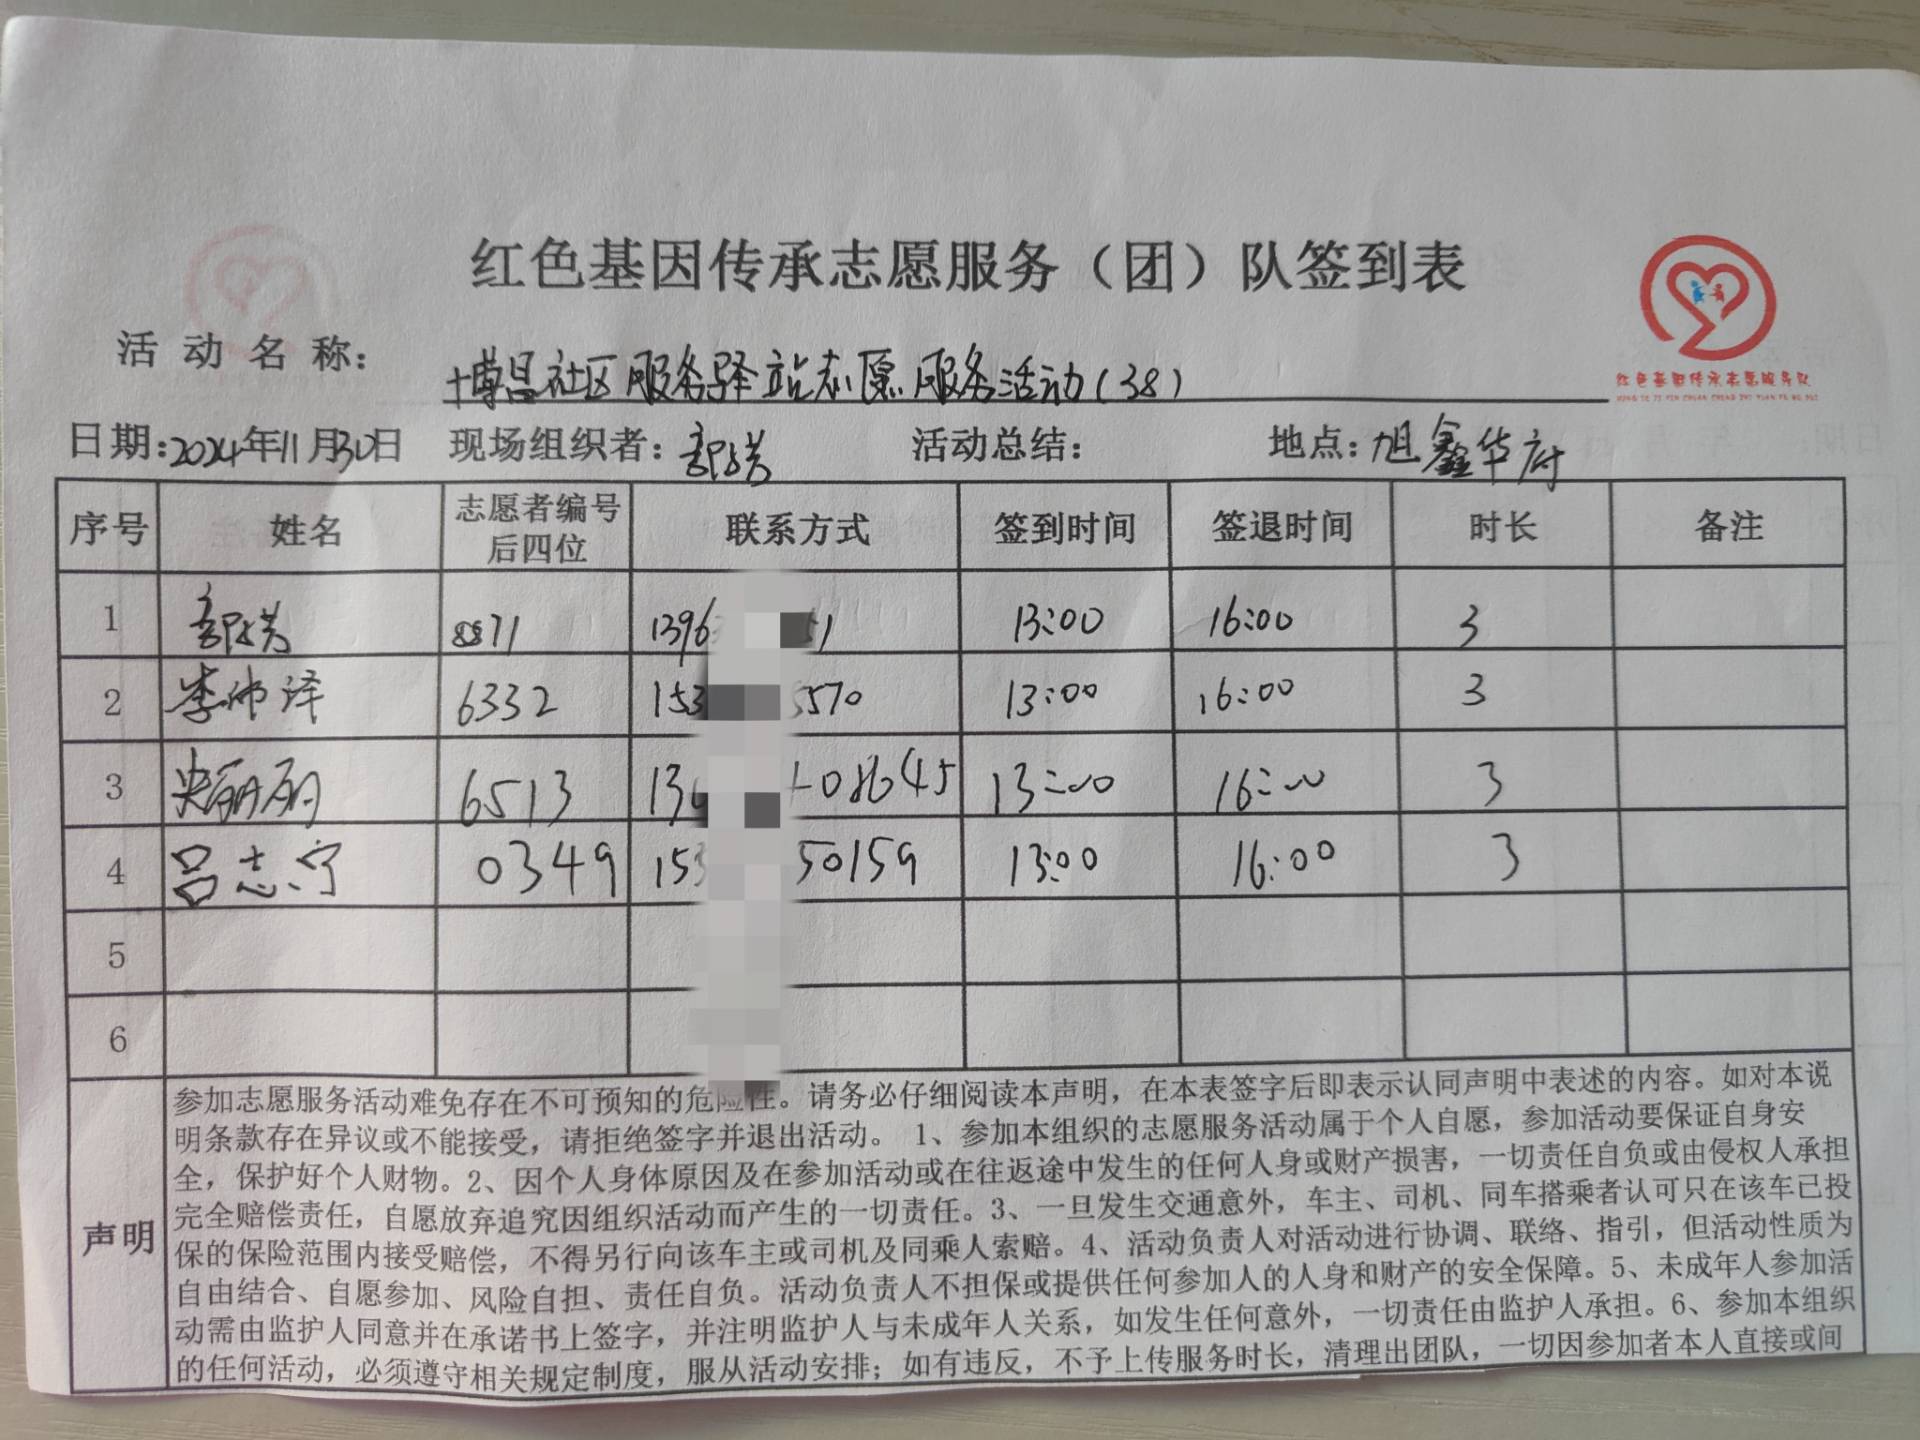 红色基因传承志愿服务（团）队签到表
红色基因传承志愿服务队
活动名称：博昌社区服务驿站志愿服务活动(38)
日期:2024年11月30日 现场组织者: 活动总结: 地点:旭鑫华府
序号 姓名 志愿者编号后四位 联系方式 签到时间 签退时间 时长 备注
1 8871 1396 51 13:00 16:00 3
2 李伟泽 6332 153 5570 13:00 16:00 3
3 史丽丽 6513 13 08645 13:00 16:00 3
4 吕志宁 0349 153 50159 13:00 16:00 3
5
6
声明
参加志愿服务活动难免存在不可预知的危险性。请务必仔细阅读本声明，在本表签字后即表示认同声明中表述的内容。如对本说
明条款存在异议或不能接受，请拒绝签字并退出活动。 1、参加本组织的志愿服务活动属于个人自愿，参加活动要保证自身安
全，保护好个人财物。2、因个人身体原因及在参加活动或在往返途中发生的任何人身或财产损害，一切责任自负或由侵权人承担
完全赔偿责任，自愿放弃追究因组织活动而产生的一切责任。3、一旦发生交通意外，车主、司机、同车搭乘者认可只在该车已投
保的保险范围内接受赔偿，不得另行向该车主或司机及同乘人索赔。4、活动负责人对活动进行协调、联络、指引，但活动性质为
自由结合、自愿参加、风险自担、责任自负。活动负责人不担保或提供任何参加人的人身和财产的安全保障。5、未成年人参加活
动需由监护人同意并在承诺书上签字，并注明监护人与未成年人关系，如发生任何意外，一切责任由监护人承担。6、参加本组织
的任何活动，必须遵守相关规定制度，服从活动安排；如有违反，不予上传服务时长，清理出团队，一切因参加者本人直接或间